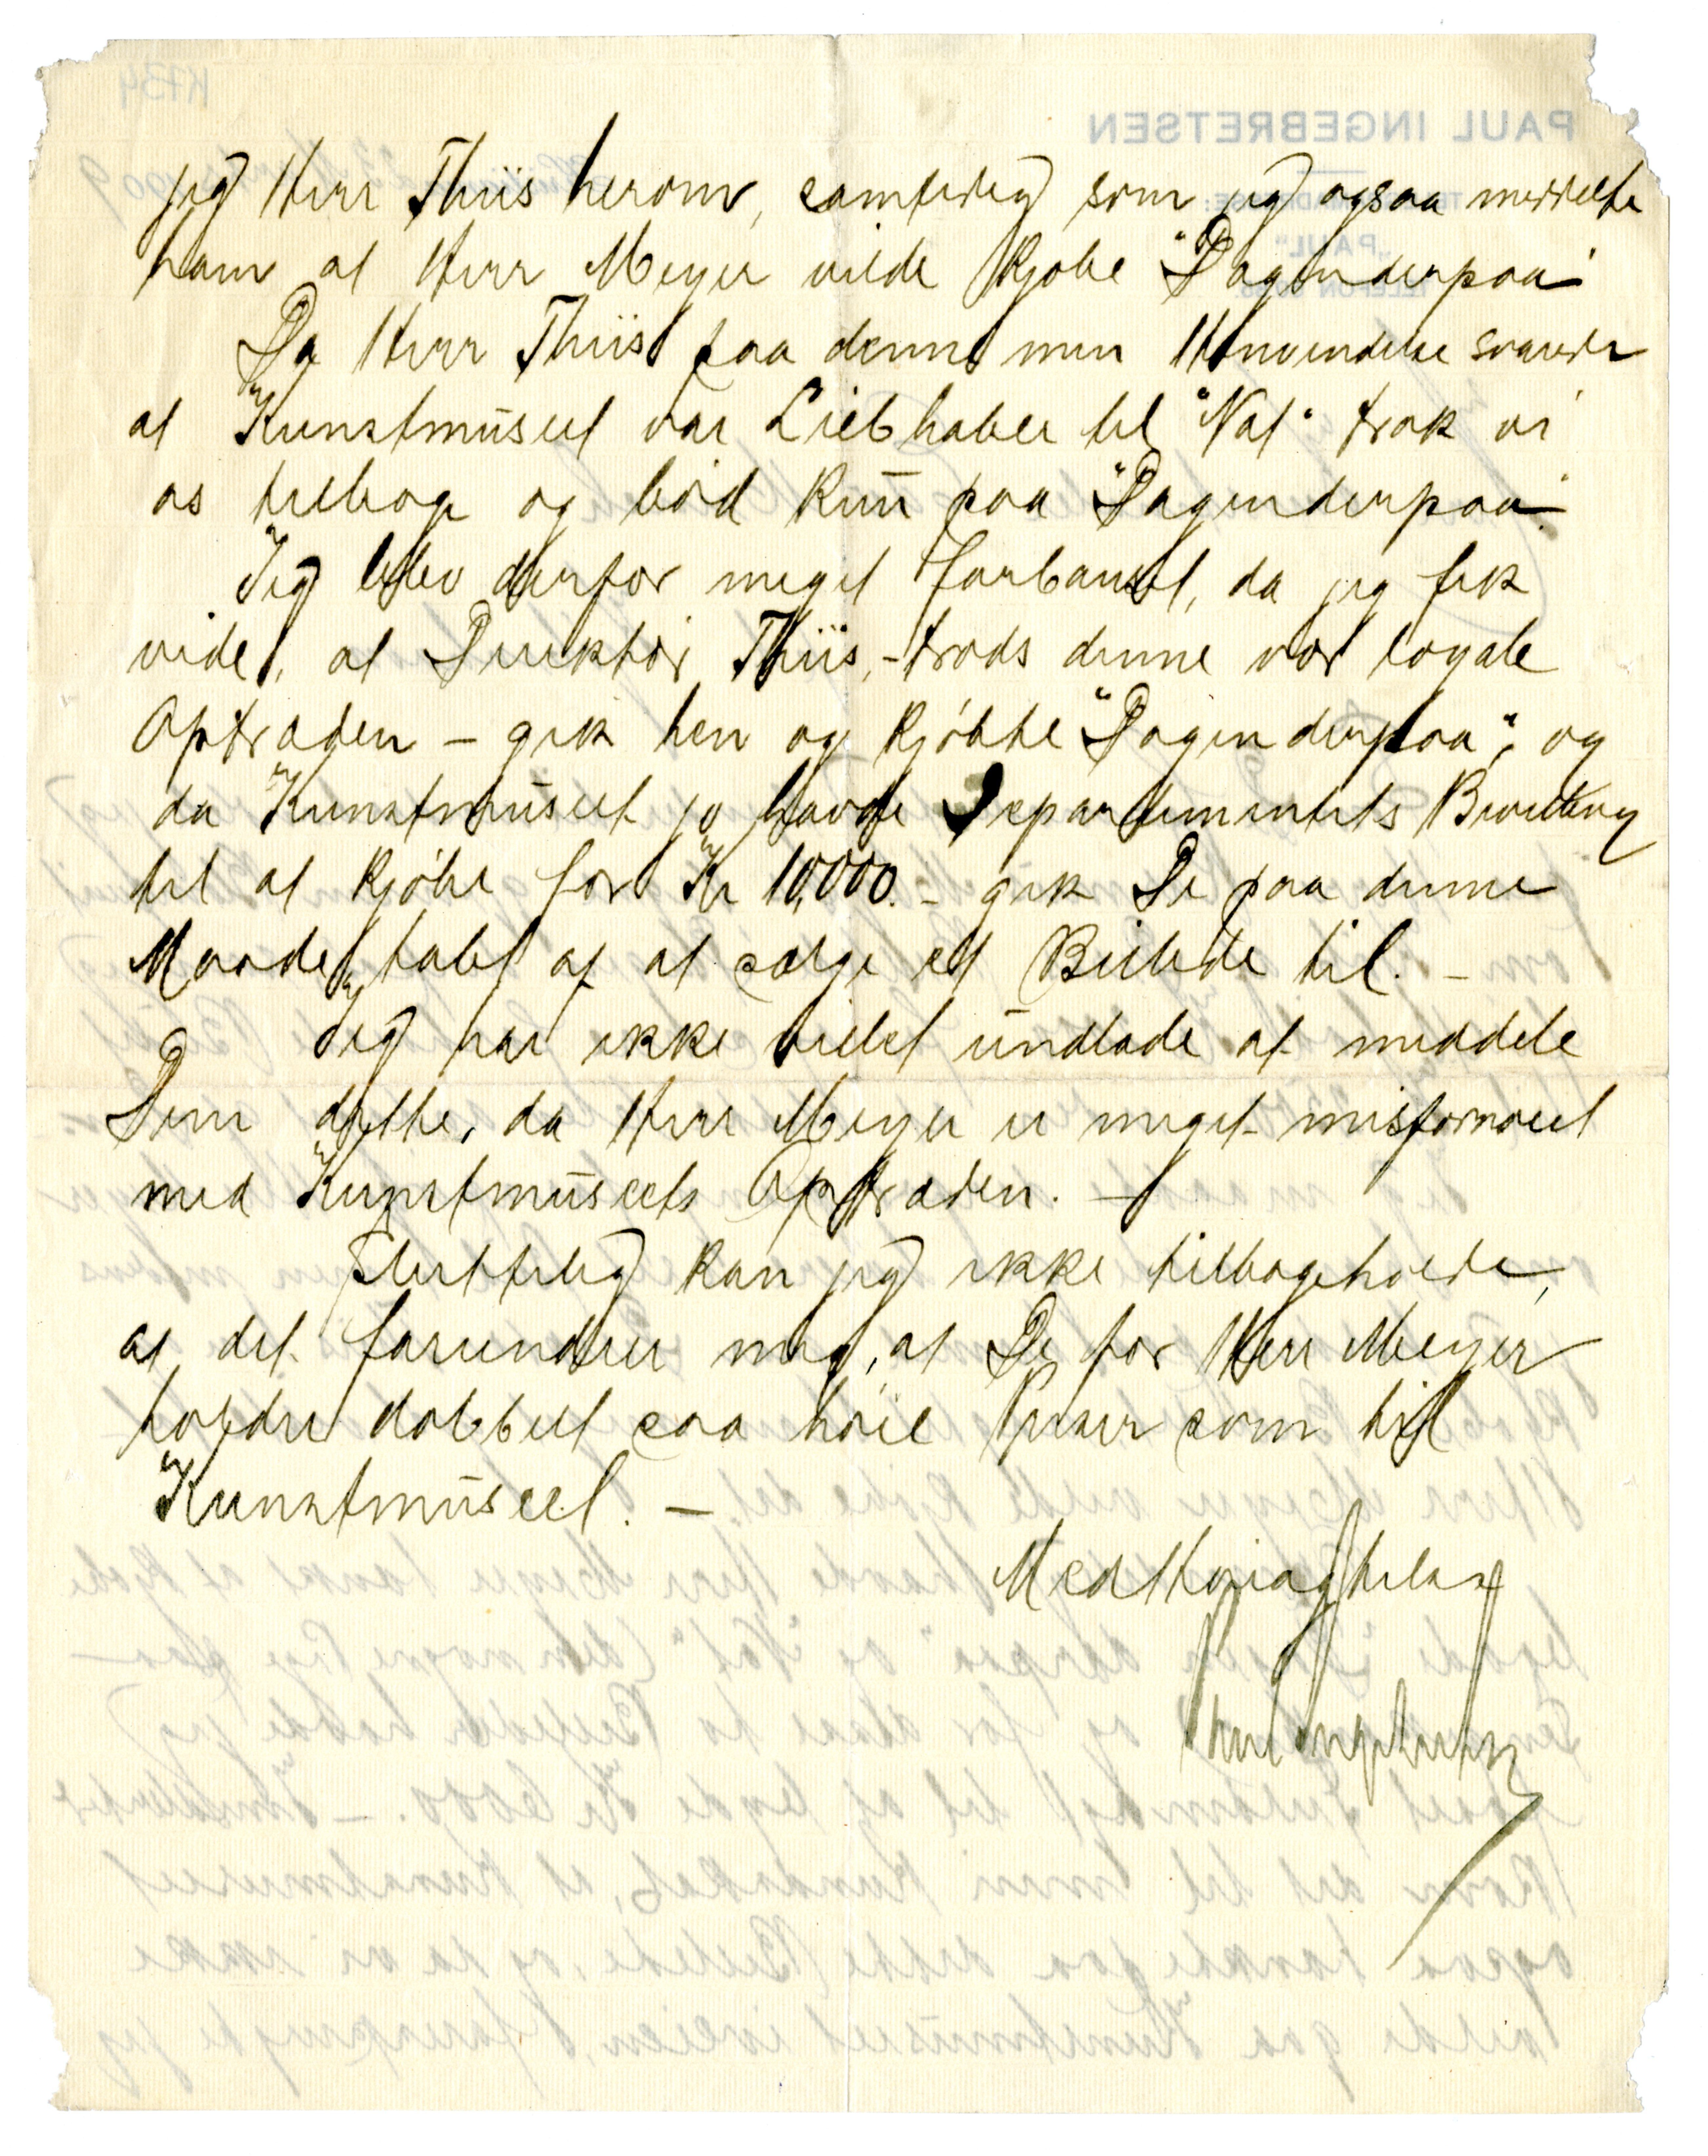 jeg Herr Thiis herom, samtidig som jeg ogsaa meddelte
ham at Herr Meyer vilde kjøbe "Dagenderpaa"
Da Herr Thiis paa denne min Henvendelse svarede
at Kunstmuseet var Liebhaber til "Nat" trak vi
os tilbage og bød kun paa "Dagenderpaa".
Jeg blev derfor meget forbauset, da jeg fik
vide, at Direktør Thiis, - trods denne vor loyale
Optræden - gik hen og kjøbte "Dagenderpaa", og
da Kunstmuseet jo havde Departementets Bevilling
til at kjøbe for Kr 10,000.- gik De paa denne
Maade tabt af at sælge et Billede til. -
Jeg har ikke villet undlade at meddele
Dem dette, da Herr Meyer er meget misfornøiet
med Kunstmuseets Optræden. -
Sluttelig kan jeg ikke tilbageholde,
at det forundrer mig, at De for Herr Meyer
fordrer dobbelt saa høie Priser som til
Kunstmuseet. -
Med Høiagtelse
Paul Ingebretsen